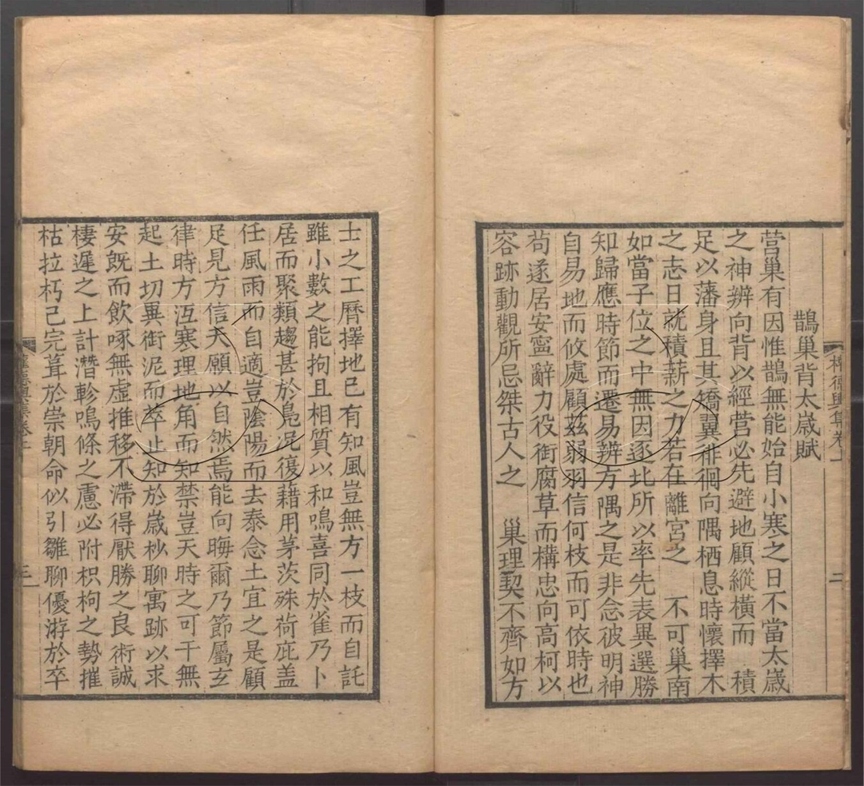 鵲巢背太歲賦
營巢有因惟鵲無能始自小寒之日不當太歲
之神辨向背以經营必先避地顧縱橫而 積
足以藩身且其矯翼徘徊向隅栖息時懷擇木
之志日就積薪之力若在離宮之 不可巢南
如當子位之中無因逐北所以率先表異選勝
知歸應時節而遷易辨方隅之是非念彼明神
自易地而攸處顧茲弱羽信何枝而可依時也
苟遂居安寧辭力役銜腐草而構忠向高柯以
容跡動觀所忌桀古人之 巢理契不齊如方
士之工曆擇地已有知風豈無方一枝而自託
雖小數之能拘且相質以和鳴喜同於雀乃卜
居而聚類趨甚於鳧況復藉用茅茨殊荷庇盖
任風雨而自適豈陰陽而去泰念土宜之是顧
足見方信天願以自然焉能向晦爾乃節屬玄
律時方沍寒理地角而知禁豈天時之可干無
起土切異銜泥而萃止知於歲杪聊寓跡以求
安既而飲啄無虛推移不滯得厭勝之良術誠
棲遲之上計潛軫鳴條之慮必附枳枸之勢摧
枯拉朽已完葺於崇朝命似引雛聊優游於卒